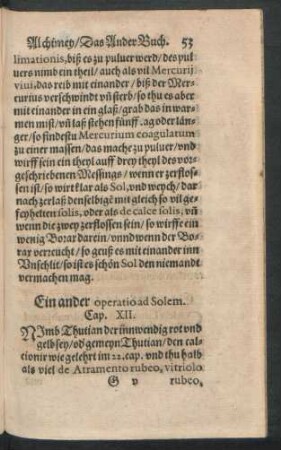 Alchimey/Das Ander Buch. 53
limationis, biß es zu puluer werd/des pul
uers nimb ein theil/auch als vil Mercurij
viui, das reib mit einander/biß der Mer-
curius verschwindt vñ sterb/so thu es aber
mit einander in ein glaß/grab das in war-
men mist/vñ laß stehen fünff. ag oder län-
ger/so findestu Mercurium coagulatum
zu einer massen/das mache zu puluer/vnd
wirff sein ein theyl auff drey theyl des vor-
geschriebenen Messings/wenn er zerflos-
sen ist/so wirt klar als Sol, vnd weych/dar
nach zerlaß denselbigē mit gleich so vil ge-
feyhelten solis, oder als de calce solis, vñ
wenn die zwey zerflossen sein/so wirffe ein
wenig Borax darein/vnnd wenn der Bo-
rax verreucht/so geuß es mit einander inn
Vnschlit/so ist es schön Sol den niemandt
vermachen mag.
Ein ander operatio ad Solem.
Cap. XII.
NImb Thutian der innwendig rot vnd
gelb sey/od gemeyn Thutian/den cal-
tionir wie gelehrt im 22. cap. vnd thu halb
als viel de Atramento rubeo, vitriolo
G v rubeo,